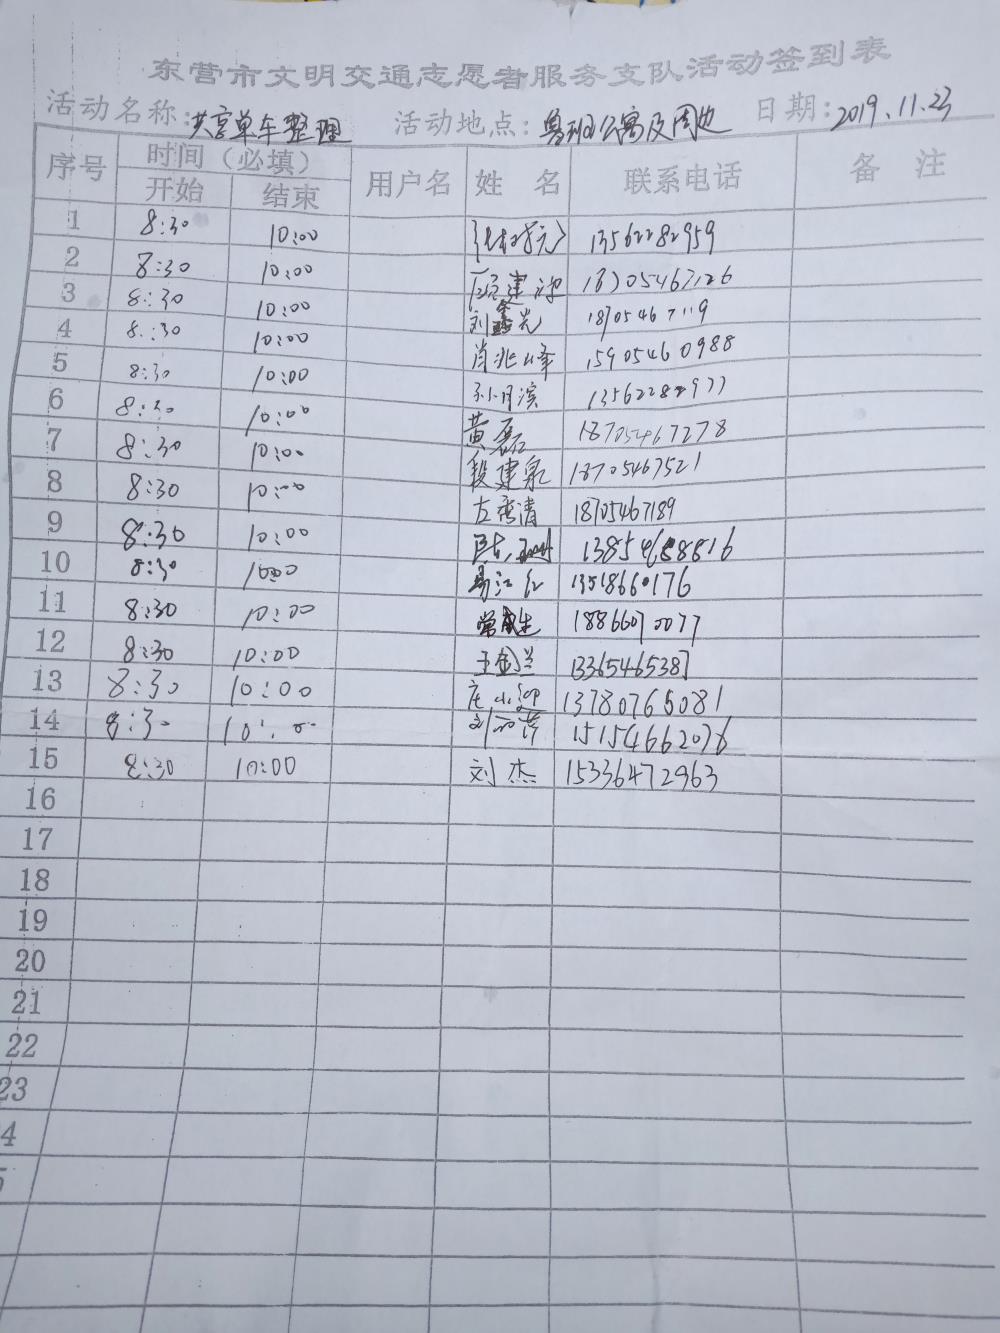 东营市文明交通志愿者服务支队活动签到表
活动名称:共享单车整理 活动地点:鲁班公寓及周边 日期:2019.11.23
序号 时间（必填） 用户名 姓名 联系电话 备注
开始 结束
1 8:30 10:00 13562282959
2 8:30 10:00 18705467126
3 8:30 10:00 刘鑫光 18705467119
4 8:30 10:00 肖兆峰 15905460988
5 8:30 10:00 孙月滨 13562282977
6 8:30 10:00 黄磊 18705467278
7 8:30 10:00 段建泉 18705467521
8 8:30 10:00 左秀清 18705467189
9 8:30 10:00 陈 13854688816
10 8:30 10:00 易江红 13518660176
11 8:30 10:00 常 18866070077
12 8:30 10:00 王金兰 13365465387
13 8:30 10:00 庄小迎 13780765081
14 8:30 10:00 刘 15154662076
15 8:30 10:00 刘杰 15336472963
16
17
18
19
20
21
22
23
4
5